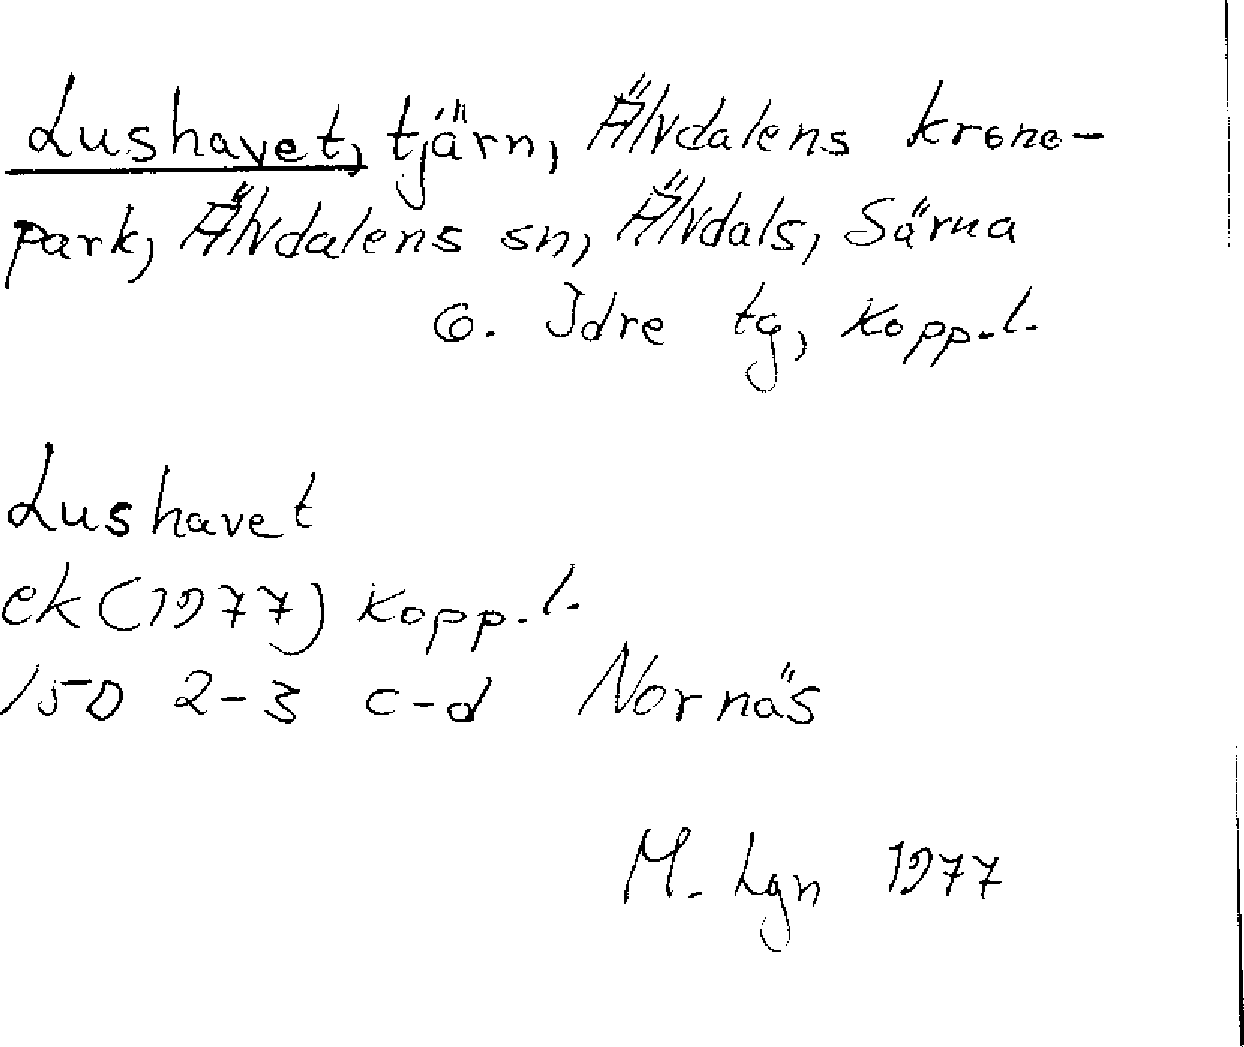 Lushavet, tjärn, Älvdalens krono-
park, Älvdalens sn, Älvdals, Särna
o. Idre tg, Kopp.l.
Lushavet
ek (1977) Kopp.l.
15D 2-3 c-d Nornäs
M. Lgn 1977